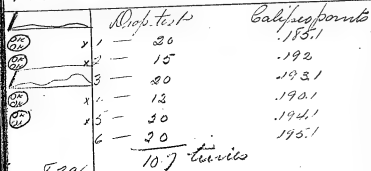 Drop test Calipso points
1 — 20 .185.1
OK OK x 2 — 15 .192
3 — 20 .193.1
OK OK x 4 — 12 .190.1
OK OK x 5 — 20 .194.1
6 — 20 .195.1
107 times